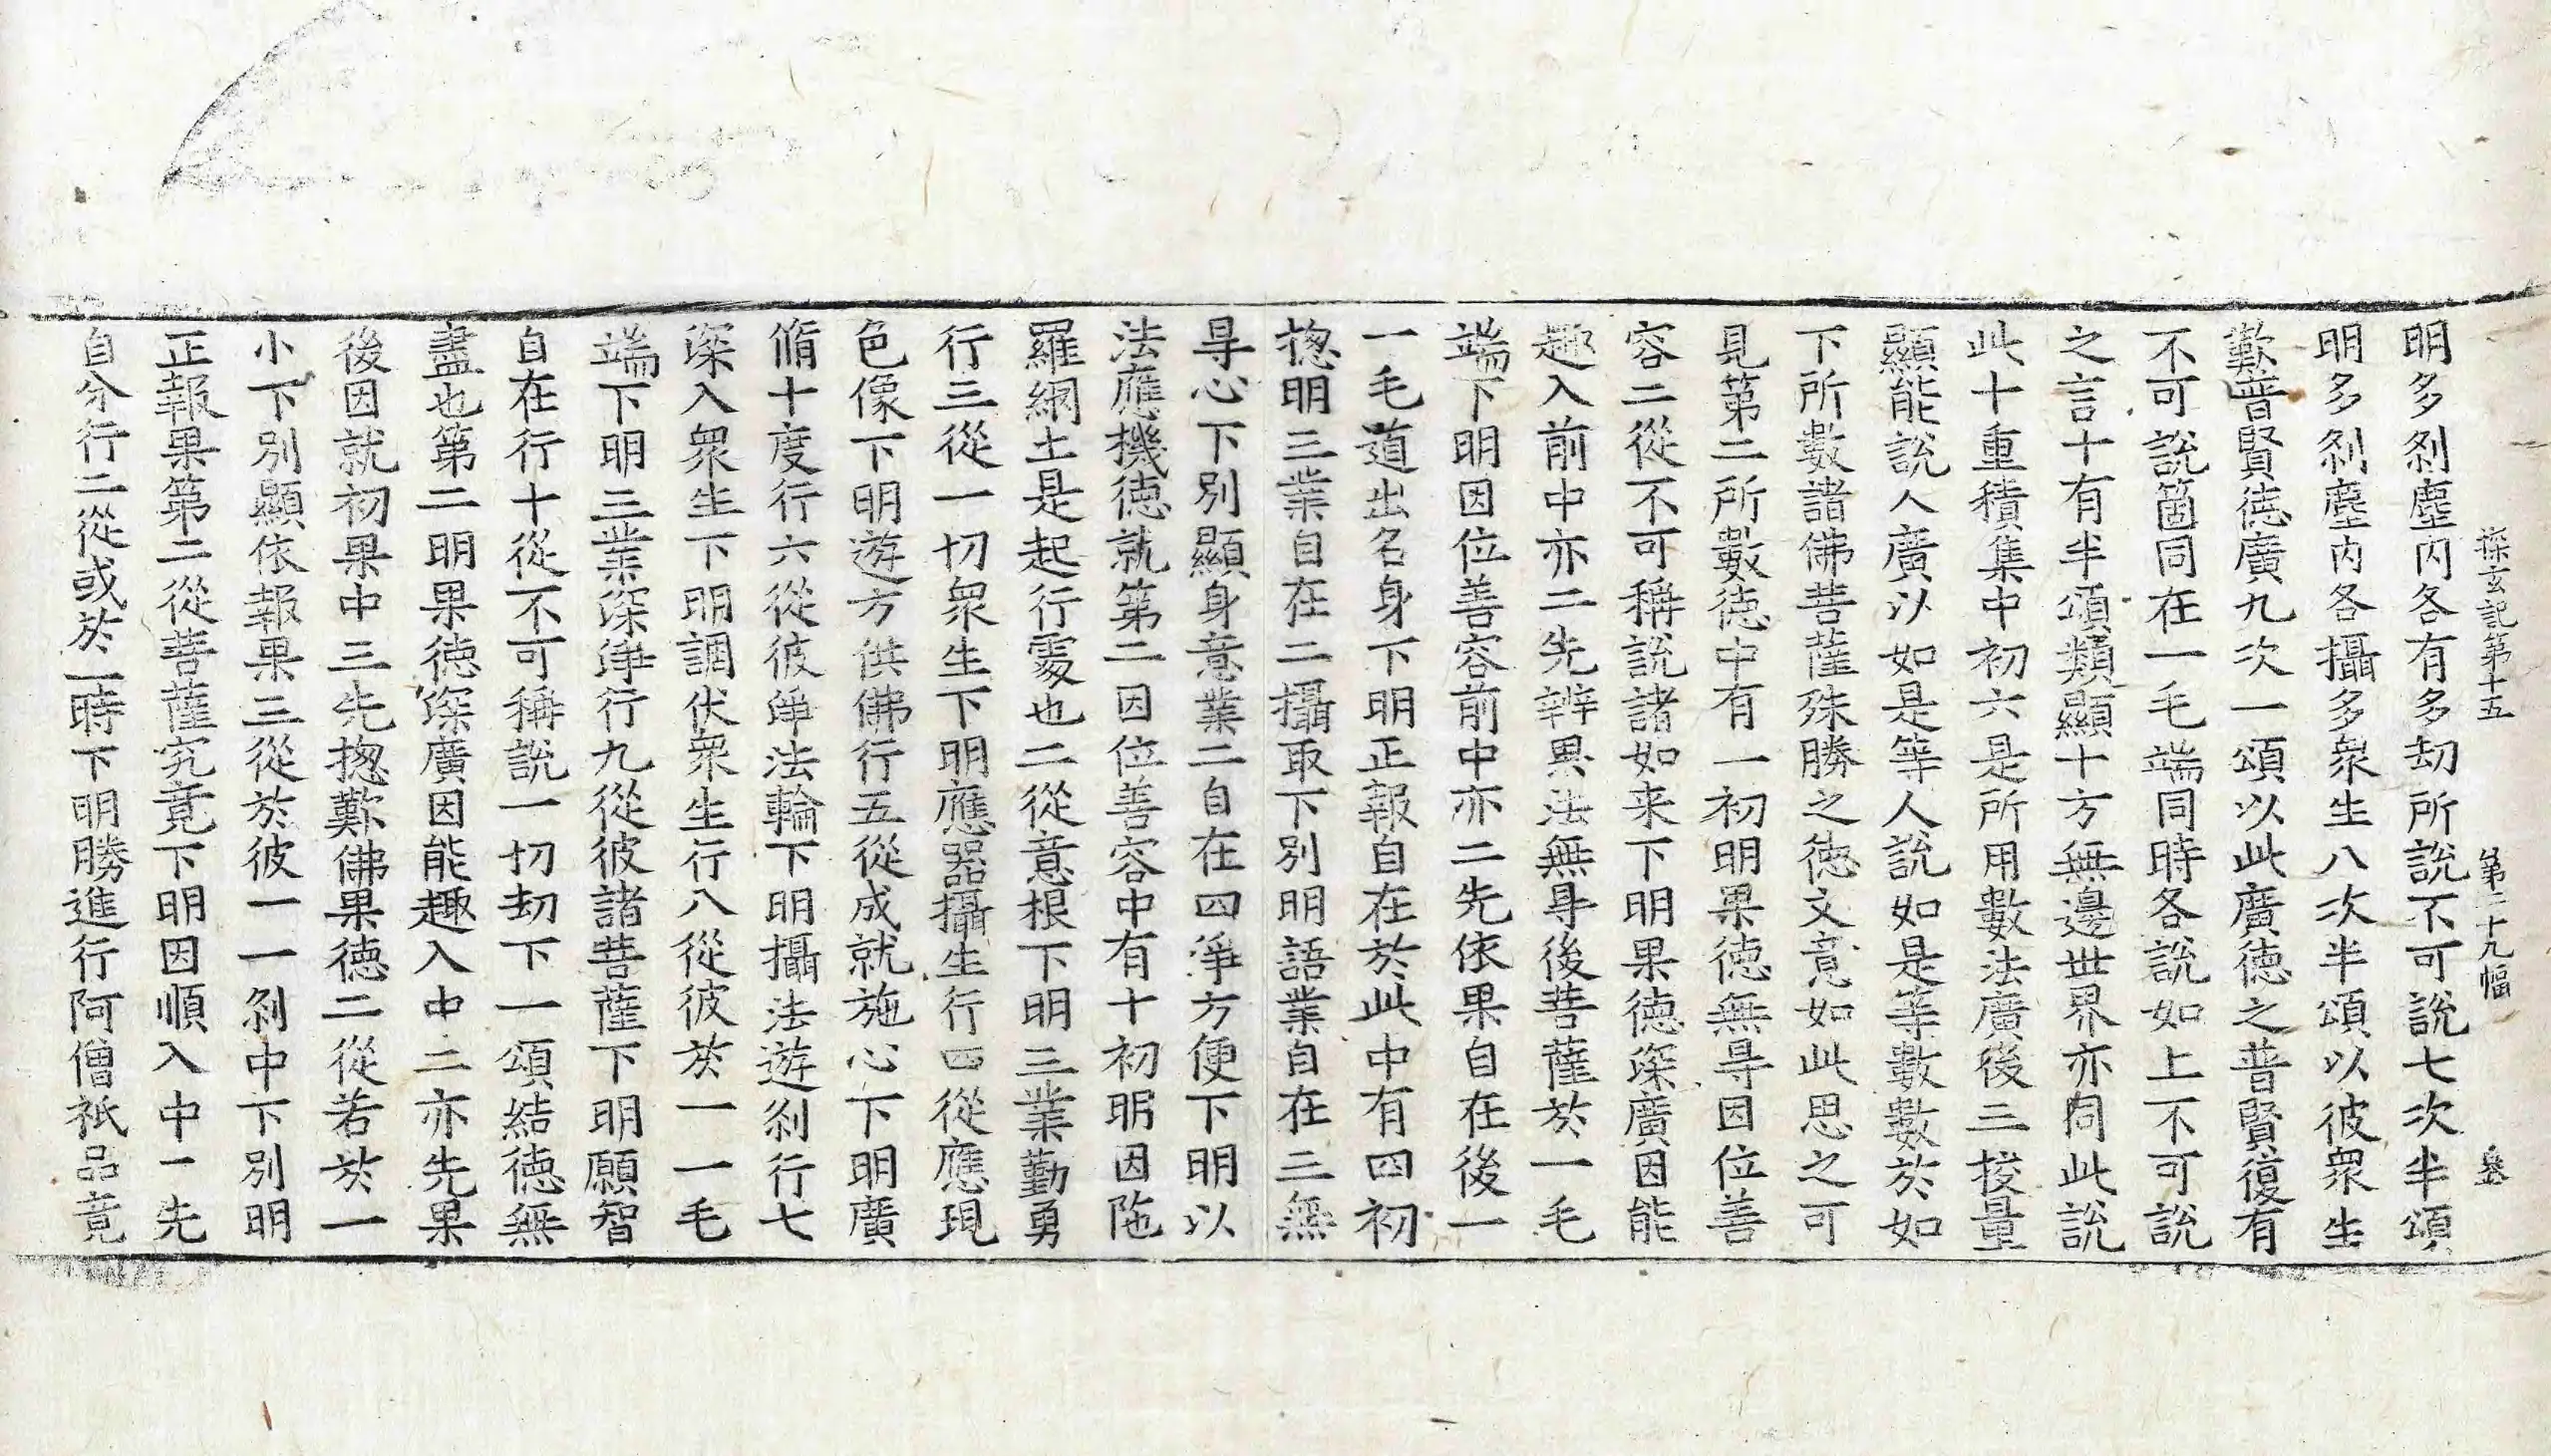 探玄記第十五 第二十九幅
明多刹塵内各有多劫所說不可說七次半頌
明多刹塵内各攝多衆生八次半頌以彼衆生
歎普賢德廣九次一頌以此廣德之普賢復有
不可說箇同在一毛端同時各說如上不可說
之言十有半頌類顯十方無邊世界亦同此說
此十重積集中初六是所用數法廣後三挍量
顯能說人廣以如是等人說如是等數數於如
下所數諸佛菩薩殊勝之德文意如此思之可
見第二所數德中有一初明果德無㝵因位善
容二從不可稱說諸如来下明果德深廣因能
趣入前中亦二先辨果法無㝵後菩薩於一毛
端下明因位善容前中亦二先依果自在後一
一毛道出名身下明正報自在於此中有四初
揔明三業自在二攝取下別明語業自在三無
㝵心下別顯身意業二自在四淨方便下明以
法應機德就第二因位善容中有十初明因陁
羅網土是起行處也二從意根下明三業勤勇
行三從一切衆生下明應器攝生行四從應現
色像下明遊方供佛行五從成就施心下明廣
脩十度行六從彼淨法輪下明攝法遊刹行七
深入衆生下明調伏衆生行八從彼於一一毛
端下明三業深淨行九從彼諸菩薩下明願智
自在行十從不可稱說一切劫下一頌結德無
盡也第二明果德深廣因能趣入中二亦先果
後因就初果中三先揔歎佛果德二從若於一
小下別顯依報果三從於彼一一刹中下別明
正報果第二從菩薩究竟下明因順入中一先
自分行二從或於一時下明勝進行阿僧祇品竟